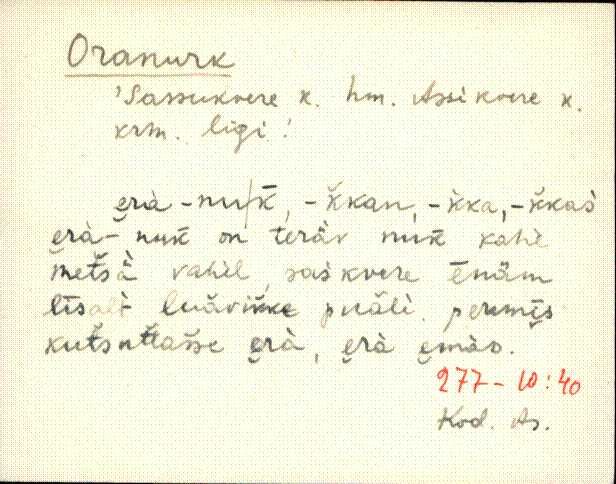 Oranurk
'Sassukvere k. hm. Assikvere k.
krm. ligi!
e̬rà-nuk̄, -k̆kan, -k̆ka, -k̆kas̀
e̬rà-nuk̄ on teräv nuk̄ kahè
met̆sä̀ vahèl, saśkvere ēnäm
līsalt̀ luăviňke puăli. peremīs
kut̆sut̆taśse e̬rà, e̬rà e̬màs.
277-10:40
Kod. As.